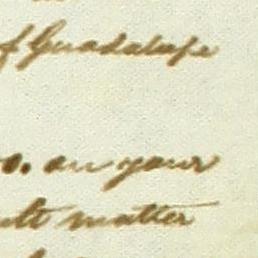 of Guadalupe
o. on your
ult matter